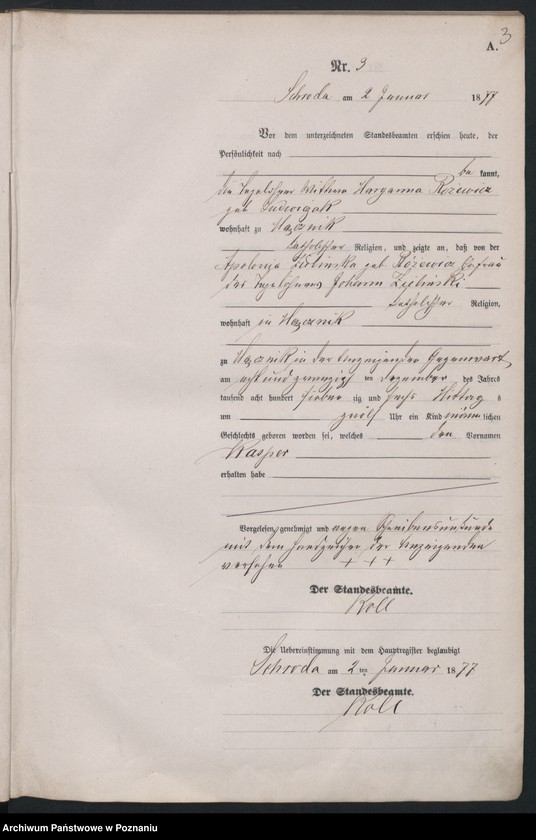 3
A.
Nr. 3
Schroda am 2 Januar 1877
Vor dem unterzeichneten Standesbeamten erschien heute, der
Persönlichkeit nach
be kannt,
die Tagelöhner Wittwe Marganna Rozewicz
geb Ludwiczak
wohnhaft zu Mącznik
katholischer Religion, und zeigte an, daß von der
Apolonja Zielinska geb Różewicz Ehefrau
des Tagelöhners Johann Zielinski
katholischer Religion,
wohnhaft in Mącznik
zu Mącznik in der Anzeigenden Gegenwart
am acht und zwanzigsten Dezember des Jahres
tausend acht hundert sieben zig und sechs Mittags
um zwölf Uhr ein Kind männlichen
Geschlechts geboren worden sei, welches den Vornamen
Kasper
erhalten habe
Vorgelesen, genehmigt und wegen Schreibensunkunde
mit dem Handzeichen der Anzeigenden
versehen + + +
Der Standesbeamte.
Roll
Die Uebereinstimmung mit dem Hauptregister beglaubigt
Schroda am 2ten Januar 1877
Der Standesbeamte.
Roll
Archiwum Państwowe w Poznaniu